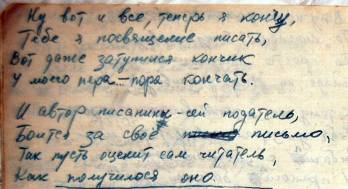 Ну вот и всё, теперь я кончу,
Тебе я посвящение писать,
Вот даже затупился кончик
У моего пера – пора кончать.
И автор писанины – сей податель,
Боится за своё письмо,
Так пусть оценит сам читатель,
Как получилося оно.